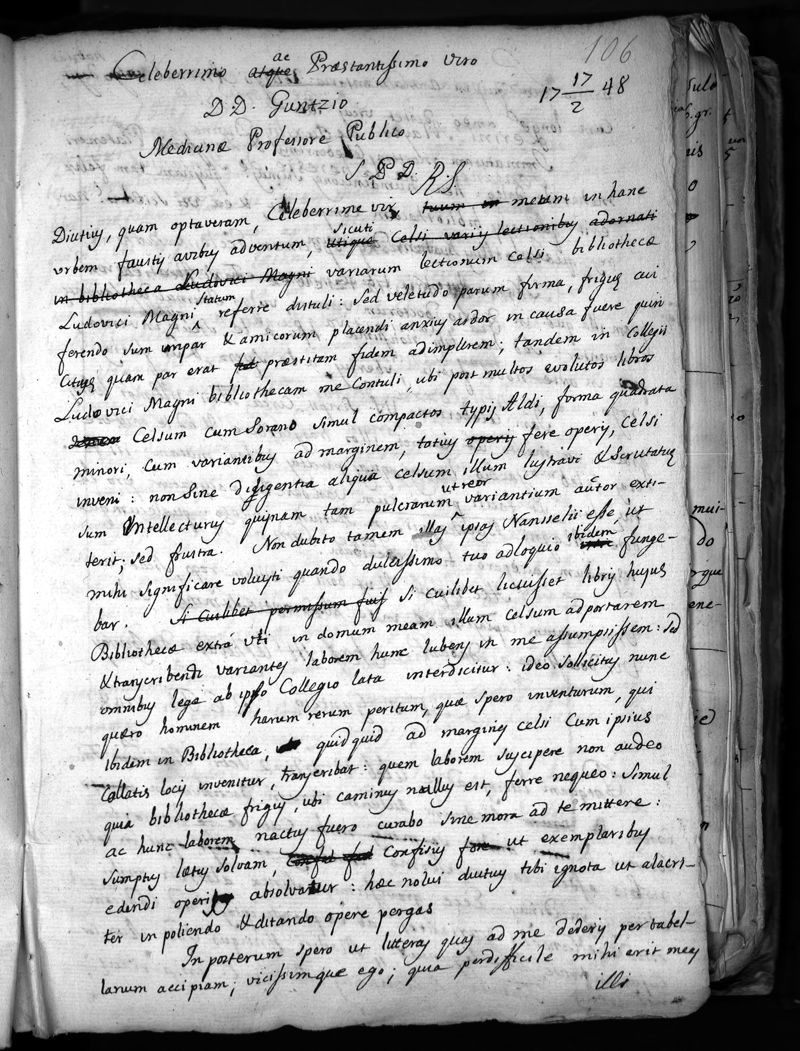 106
Celeberrimo atque ac Præstantissimo viro
17 17/2 48
DD. Guntzio
Medicinæ Professore Publico
S P D. R.S.
Diutius, quam optaveram, Celeberrime vir, tuum in meum in hanc
urbem faustis avibus adventum, utique sicuti Celsi variis lectionibus adornati
in bibliotheca Ludovici Magni variarum lectionum Celsi bibliothecæ
Ludovici Magni statum referre distuli: sed veletudo parum firma, frigus cui
ferendo sum impar & amicorum placendi anxius ardor in causa fuere quin
Citius quam par erat præstitam fidem adimplerem; tandem in Collegii
Ludovici Magni bibliothecam me Contuli, ubi post multos evolutos libros
Celsum cum Sorano simul compactos typis Aldi, forma quadrata
minori, cum variantibus ad marginem, totius operis fere operis, Celsi
inveni: non sine diligentia aliqua celsum illum lustravi & scrutatus
sum Intellecturus quisnam tam pulcrarum ut reor variantium autor exti-
terit; sed frustra. Non dubito tamen illas ipsas Nansselii esse, ut
mihi significare voluisti quando dulcissimo tuo adloquio ibidem funge-
bar. Si Cuilibet permissum fuis si cuilibet licuisset libris hujus
Bibliothecæ extra uti in domum meam illum celsum adportarem
& transcribendi variantes laborem hunc lubens in me assumpsissem: sed
omnibus lege ab ipso Collegio lata interdicitur: ideo sollicitus nunc
quæro hominem harum rerum peritum, quæ spero inventurum, qui
Ibidem in Bibliotheca, quidquid ad margines celsi cum ipsius
Collatis locis invenitur, transcribat: quem laborem suscipere non audeo
quia bibliothecæ frigus, ubi caminus nullus est, ferre nequeo: simul
ac hunc laborem nactus fuero curabo sine mora ad te mittere:
sumptus lætus solvam, Confisus fore ut exemplaribus
edendi operis absolvatur: hæc nolui diutius tibi ignota ut alacri-
ter in poliendo & ditando opere pergas
In posterum spero ut litteras quas ad me dederis per tabel-
larium accipiam; vicissimque ego; quia perdifficile mihi erit meas
illi